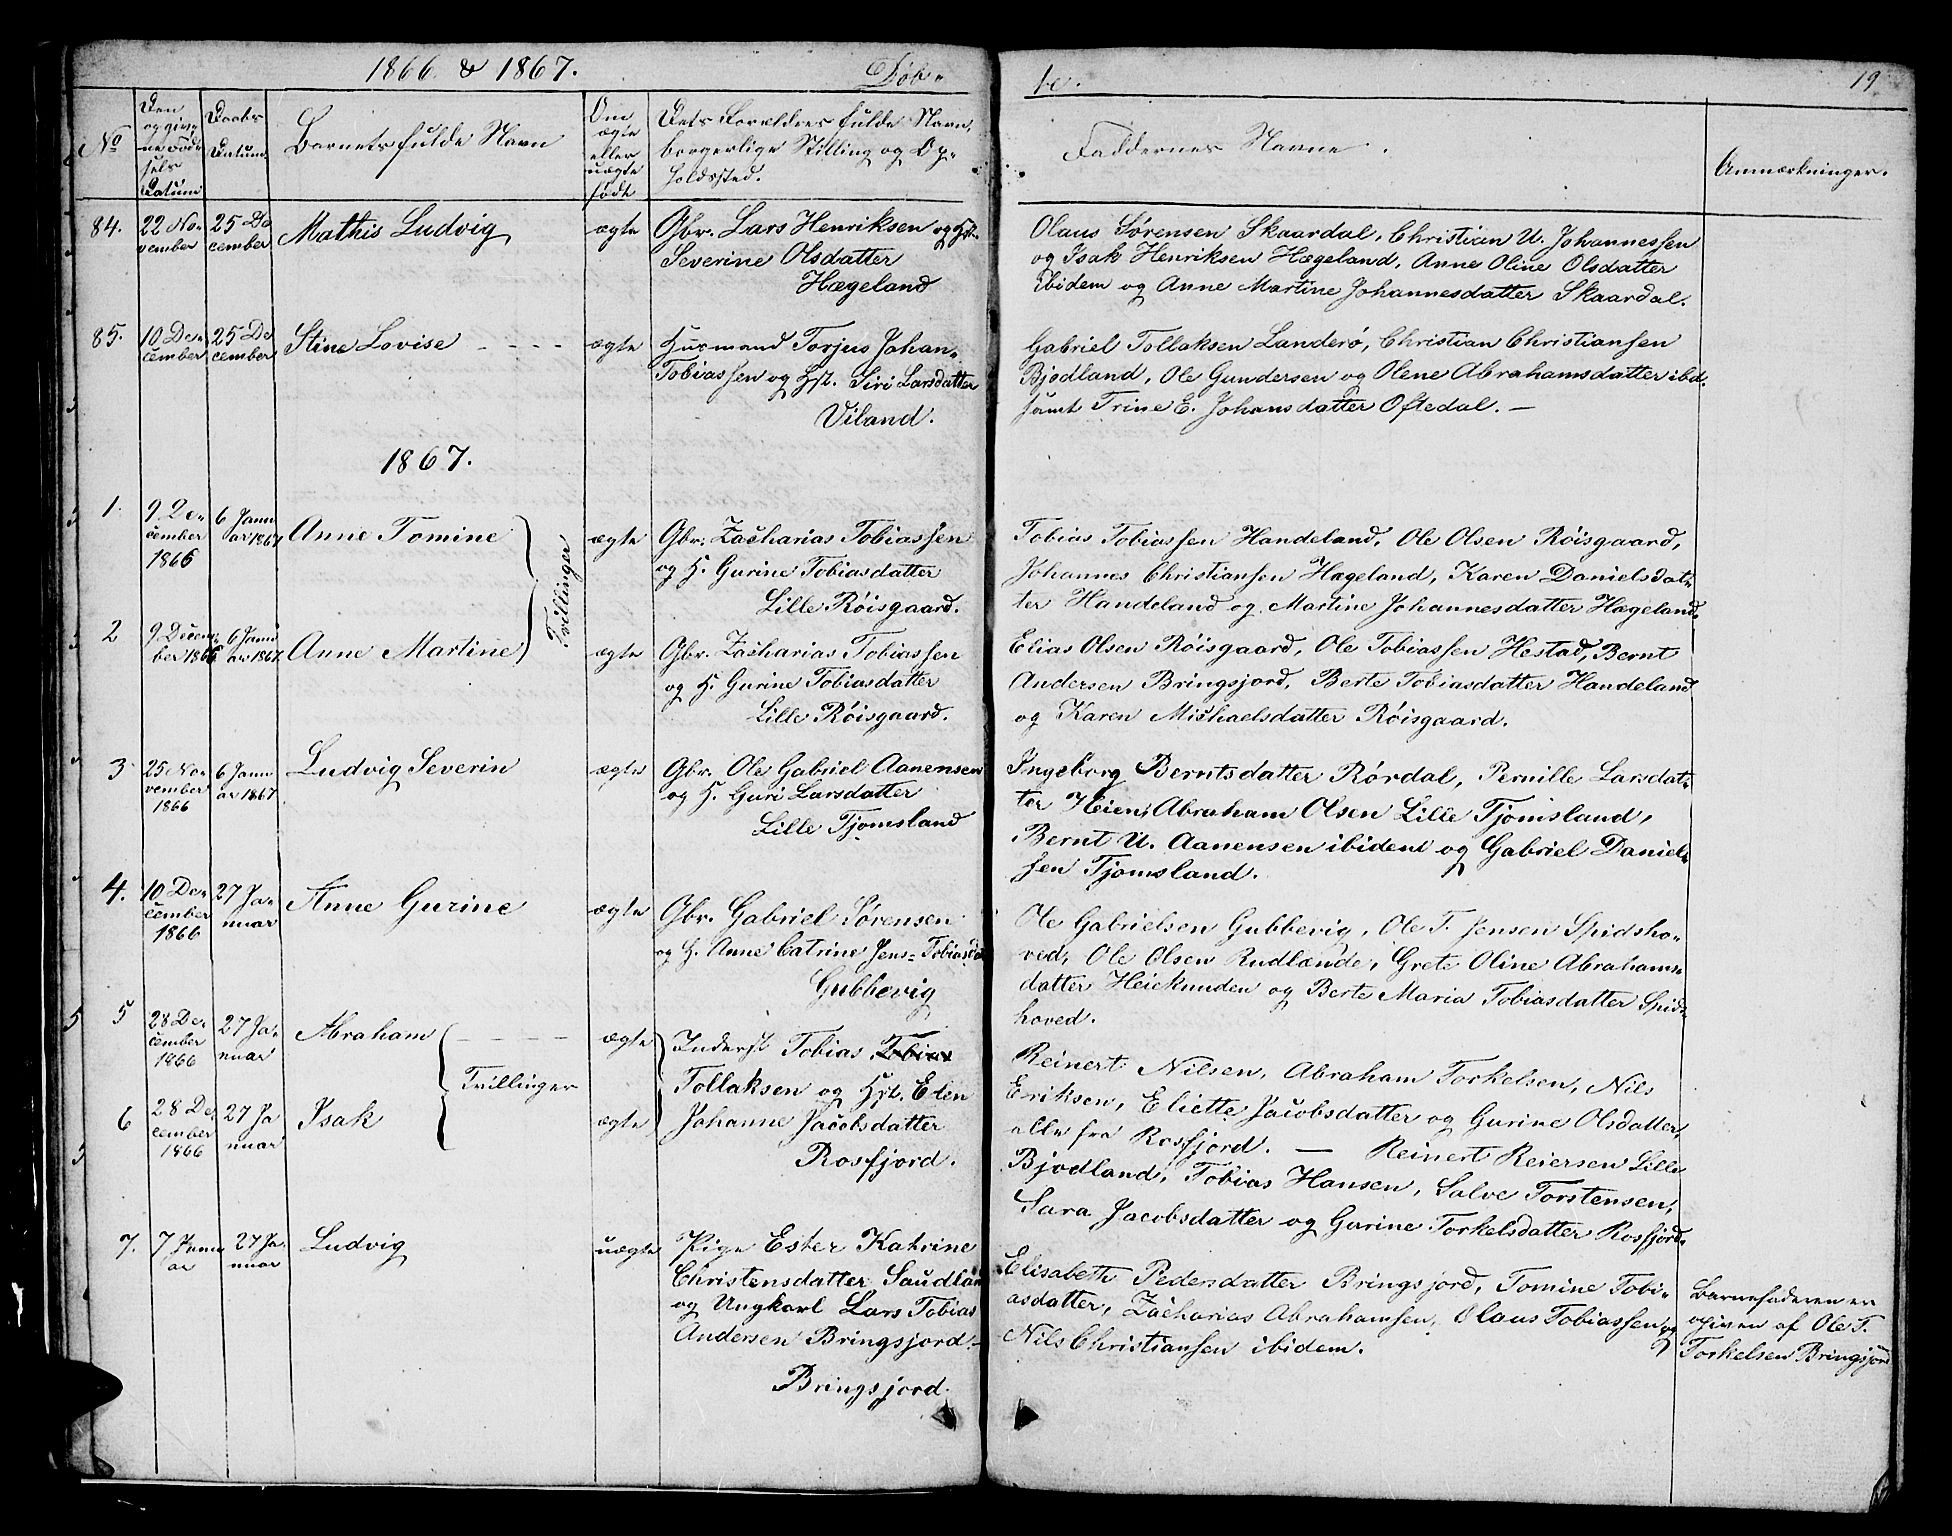 1866 & 1867. Døb-
te. 19
No
Den opgivne Fødsels Datum
Daabs Datum
Barnets fulde Navn
Om ægte eller uægte født
Dets Forældres fulde Navn, borgerlige Stilling og Opholdssted.
Faddernes Navne.
Anmærkninger.
84. 22 November 25 December Mathis Ludvig ægte
Gbr. Lars Henriksen og Hst.
Severine Olsdatter
Hægeland
Olaus Sørensen Skaardal, Christian U. Johannessen
og Isak Henriksen Hægeland, Anne Oline Olsdatter
ibidem og Anne Martine Johannesdatter Skaardal.
85. 10 December 25 December Stine Lovise - - - - ægte
Husmand Torjus Johan
Tobiassen og Hst. Siri Larsdatter
Viland.
Gabriel Tollaksen Landerø, Christian Christiansen
Bjodland, Ole Gundersen og Olene Abrahamsdatter ibd.
samt Trine E. Johansdatter Oftedal. —
1867.
1. 9 December 1866 6 Januar 1867 Anne Tomine Tvillinger ægte
Gbr. Zacharias Tobiassen
og H. Gurine Tobiasdatter
Lille Røisgaard.
Tobias Tobiassen Handeland, Ole Olsen Røisgaard,
Johannes Christiansen Hægeland, Karen Danielsdat-
ter Handeland og Martine Johannesdatter Hægeland.
2 9 December 1866 6 Januar 1867 Anne Martine ægte
Gbr. Zacharias Tobiassen
og H. Gurine Tobiasdatter
Lille Røisgaard.
Elias Olsen Røisgaard, Ole Tobiassen Hestad, Bernt
Andersen Bringsjord, Berte Tobiasdatter Handeland
og Karen Michaelsdatter Røisgaard.
3 25 November 1866 6 Januar 1867 Ludvig Severin ægte
Gbr. Ole Gabriel Aanensen
og H. Guri Larsdatter
Lille Tjomsland
Ingeborg Berntsdatter Rørdal, Pernille Larsdat-
ter Heien, Abraham Olsen Lille Tjomsland,
Bernt U. Aanensen ibidem og Gabriel Daniel-
sen Tjomsland.
4. 10 December 1866 27 Januar Anne Gurine ægte
Gbr. Gabriel Sørensen
og H. Anne Catrine Jens-Tobiasd.
Gubbevig
Ole Gabrielsen Gubbevig, Ole T. Jensen Spidsho-
ved, Ole Olsen Rudlænde, Grete Oline Abrahams-
datter Heiekunden og Berte Maria Tobiasdatter Spids-
hoved.
5 28 December 1866 27 Januar Abraham - - - - ægte
Tvillinger
6 28 December 1866 27 Januar Isak ægte
Inderst Tobias Tobias
Tollaksen og Hst. Elen
Johanne Jacobsdatter
Rosfjord.
Reinert Nilsen, Abraham Torkelsen, Nils
Eriksen, Eliette Jacobsdatter og Gurine Olsdatter,
alle fra Rosfjord. — Reinert Reiersen Lille
Bjodland, Tobias Hansen, Salve Torstensen,
Sara Jacobsdatter og Gurine Torkelsdatter Rosfjord.
7. 7 Januar 27 Januar Ludvig uægte
Pige Ester Katrine
Christensdatter Saudland
og Ungkarl Lars Tobias
Andersen Bringsjord.-
Bringsjord.
Elisabeth Pedersdatter Bringsjord, Tomine Tobi-
asdatter, Zacharias Abrahamsen, Olaus Tobiassen og
Nils Christiansen ibidem.
Barnefaderen er
opgiven af Ole T.
Torkelsen Bringsjord